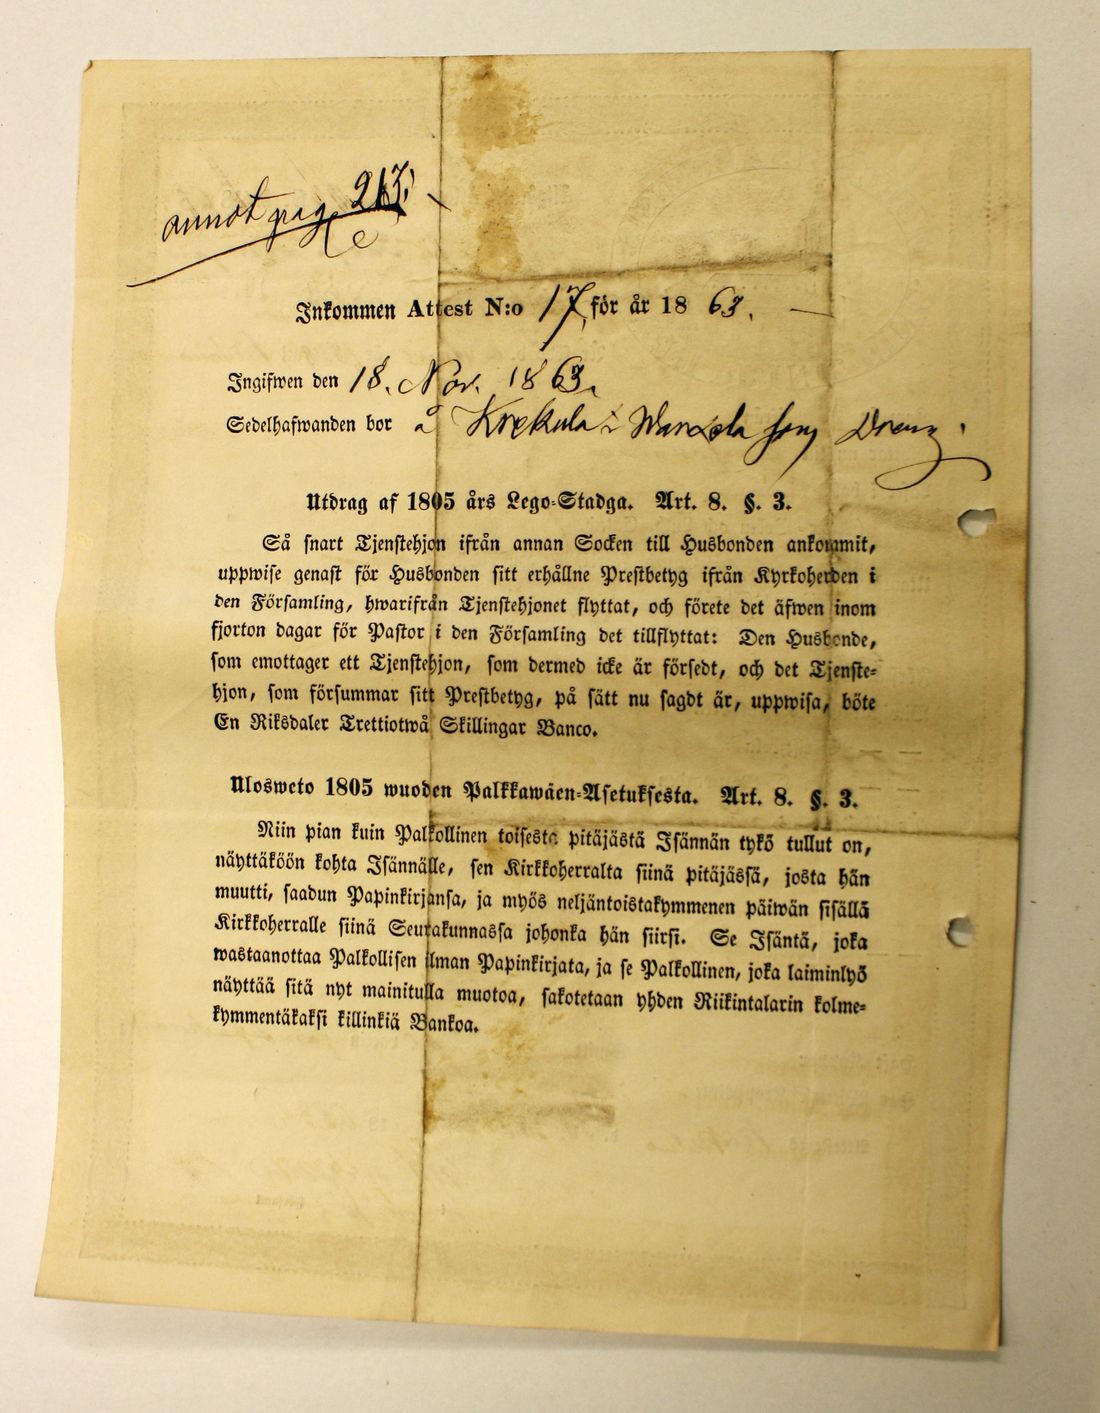 annot pag. 213.
Inkommen Attest N:o 17, för år 18 63.
Ingifwen den 18. Nov. 1863.
Sedelhafwanden bor å Krekula i Wanda som Dreng.
Utdrag af 1805 års Lego-Stadga. Art. 8. §. 3.
Så snart Tjenstehjon ifrån annan Socken till Husbonden ankommit,
uppwise genast för Husbonden sitt erhållne Prestbetyg ifrån Kyrkoherden i
den Församling, hwarifrån Tjenstehjonet flyttat, och förete det äfwen inom
fjorton dagar för Pastor i den Församling det tillflyttat: Den Husbonde,
som emottager ett Tjenstehjon, som dermed icke är försedt, och det Tjenste-
hjon, som försummar sitt Prestbetyg, på sätt nu sagdt är, uppwisa, böte
En Riksdaler Trettiotwå Skillingar Banco.
Ulosweto 1805 wuoden Palkkawäen-Asetuksesta. Art. 8. §. 3.
Niin pian kuin Palkollinen toisesta pitäjästä Isännän tykö tullut on,
näyttäköön kohta Isännälle, sen Kirkkoherralta siinä pitäjässä, josta hän
muutti, saadun Papinkirjansa, ja myös neljäntoistakymmenen päiwän sisällä
Kirkkoherralle siinä Seurakunnassa johonka hän siirsi. Se Isäntä, joka
wastaanottaa Palkollisen ilman Papinkirjata, ja se Palkollinen, joka laiminlyö
näyttää sitä nyt mainitulla muotoa, sakotetaan yhden Riikintalarin kolme-
kymmentäkaksi killinkiä Bankoa.